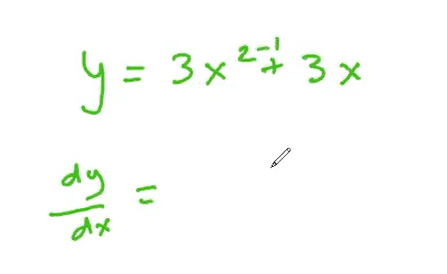 y = 3x²⁻¹ + 3x
dy/dx =